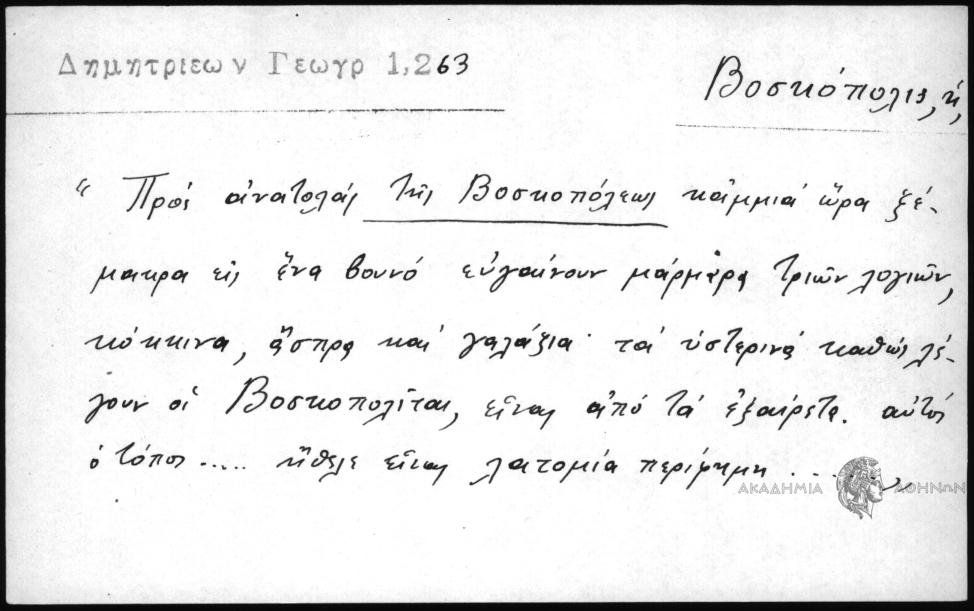 Δημητριεων Γεωγρ 1,263
Βοσκόπολις, ἡ,
“ Πρός ἀνατολάς τῆς Βοσκοπόλεως κάμμιά ὥρα ξέ-
μακρα εἰς ἕνα βουνό εὐγαίνουν μάρμαρα τριῶν λογιῶν,
κόκκινα, ἄσπρα και γαλάζια· τά ὑστερινά καθώς λέ-
γουν οἱ Βοσκοπολῖται, εἶναι ἀπό τά ἐξαίρετα. αὐτός
ὁ τόπος ..... ἤθελε εἶναι λατομία περίφημη .....”
ΑΚΑΔΗΜΙΑ ΑΘΗΝΩΝ